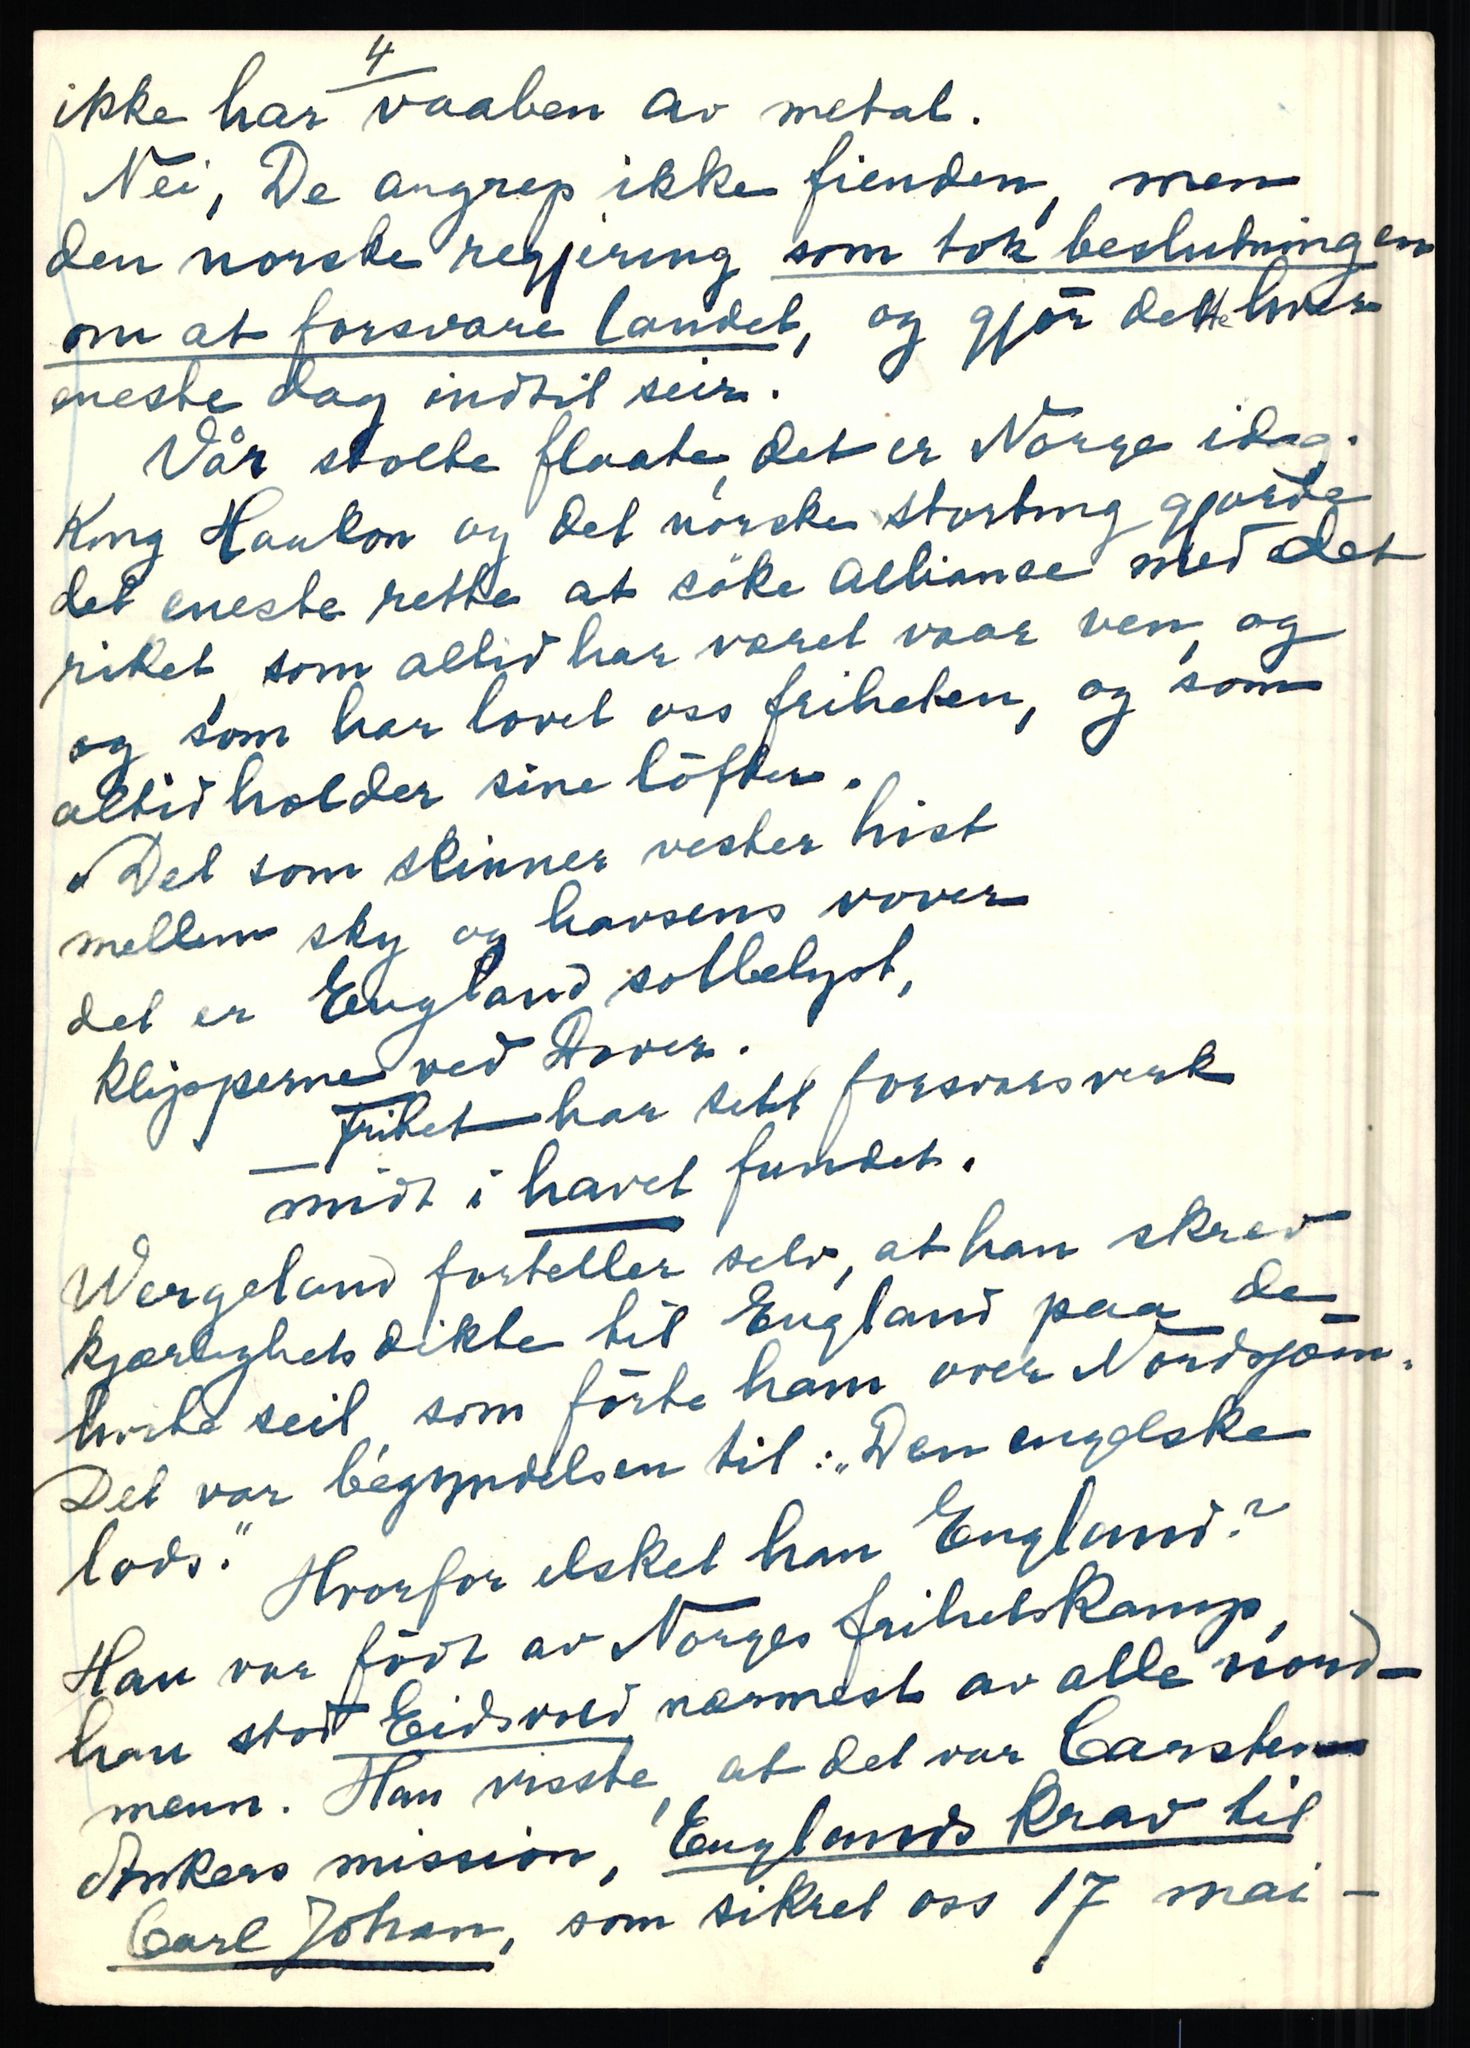 4
ikke har vaaben av metal.
Nei, De angrep ikke fienden, men
den norske regjering som tok beslutningen
om at forsvare landet, og gjör dette hver
eneste dag indtil seir.
Vår stolte flaate, det er Norge idag.
Kong Haakon og det norske storting gjorde
det eneste rette at söke alliance med det
riket, som altid har været vaar ven, og
og som har lovet oss friheten, og som
altid holder sine löfter.
"Det som skinner vester hist
mellem sky og havsens vover
det er England solbelyst,
klipperne ved Dover.
Frihet har sitt forsvarsverk
midt i havet fundet.
Wergeland forteller selv, at han skrev
kjærlighetsdikte til England paa de
hvite seil, som förte ham over Nordsjöen.
Det var begyndelsen til: "Den engelske
lods." Hvorfor elsket han England?
Han var födt av Norges frihetskamp,
han stod Eidsvold nærmest av alle nord-
menn. Han visste, at det var Carsten
Ankers mission, Englands krav til
Carl Johan, som sikret oss 17 mai -